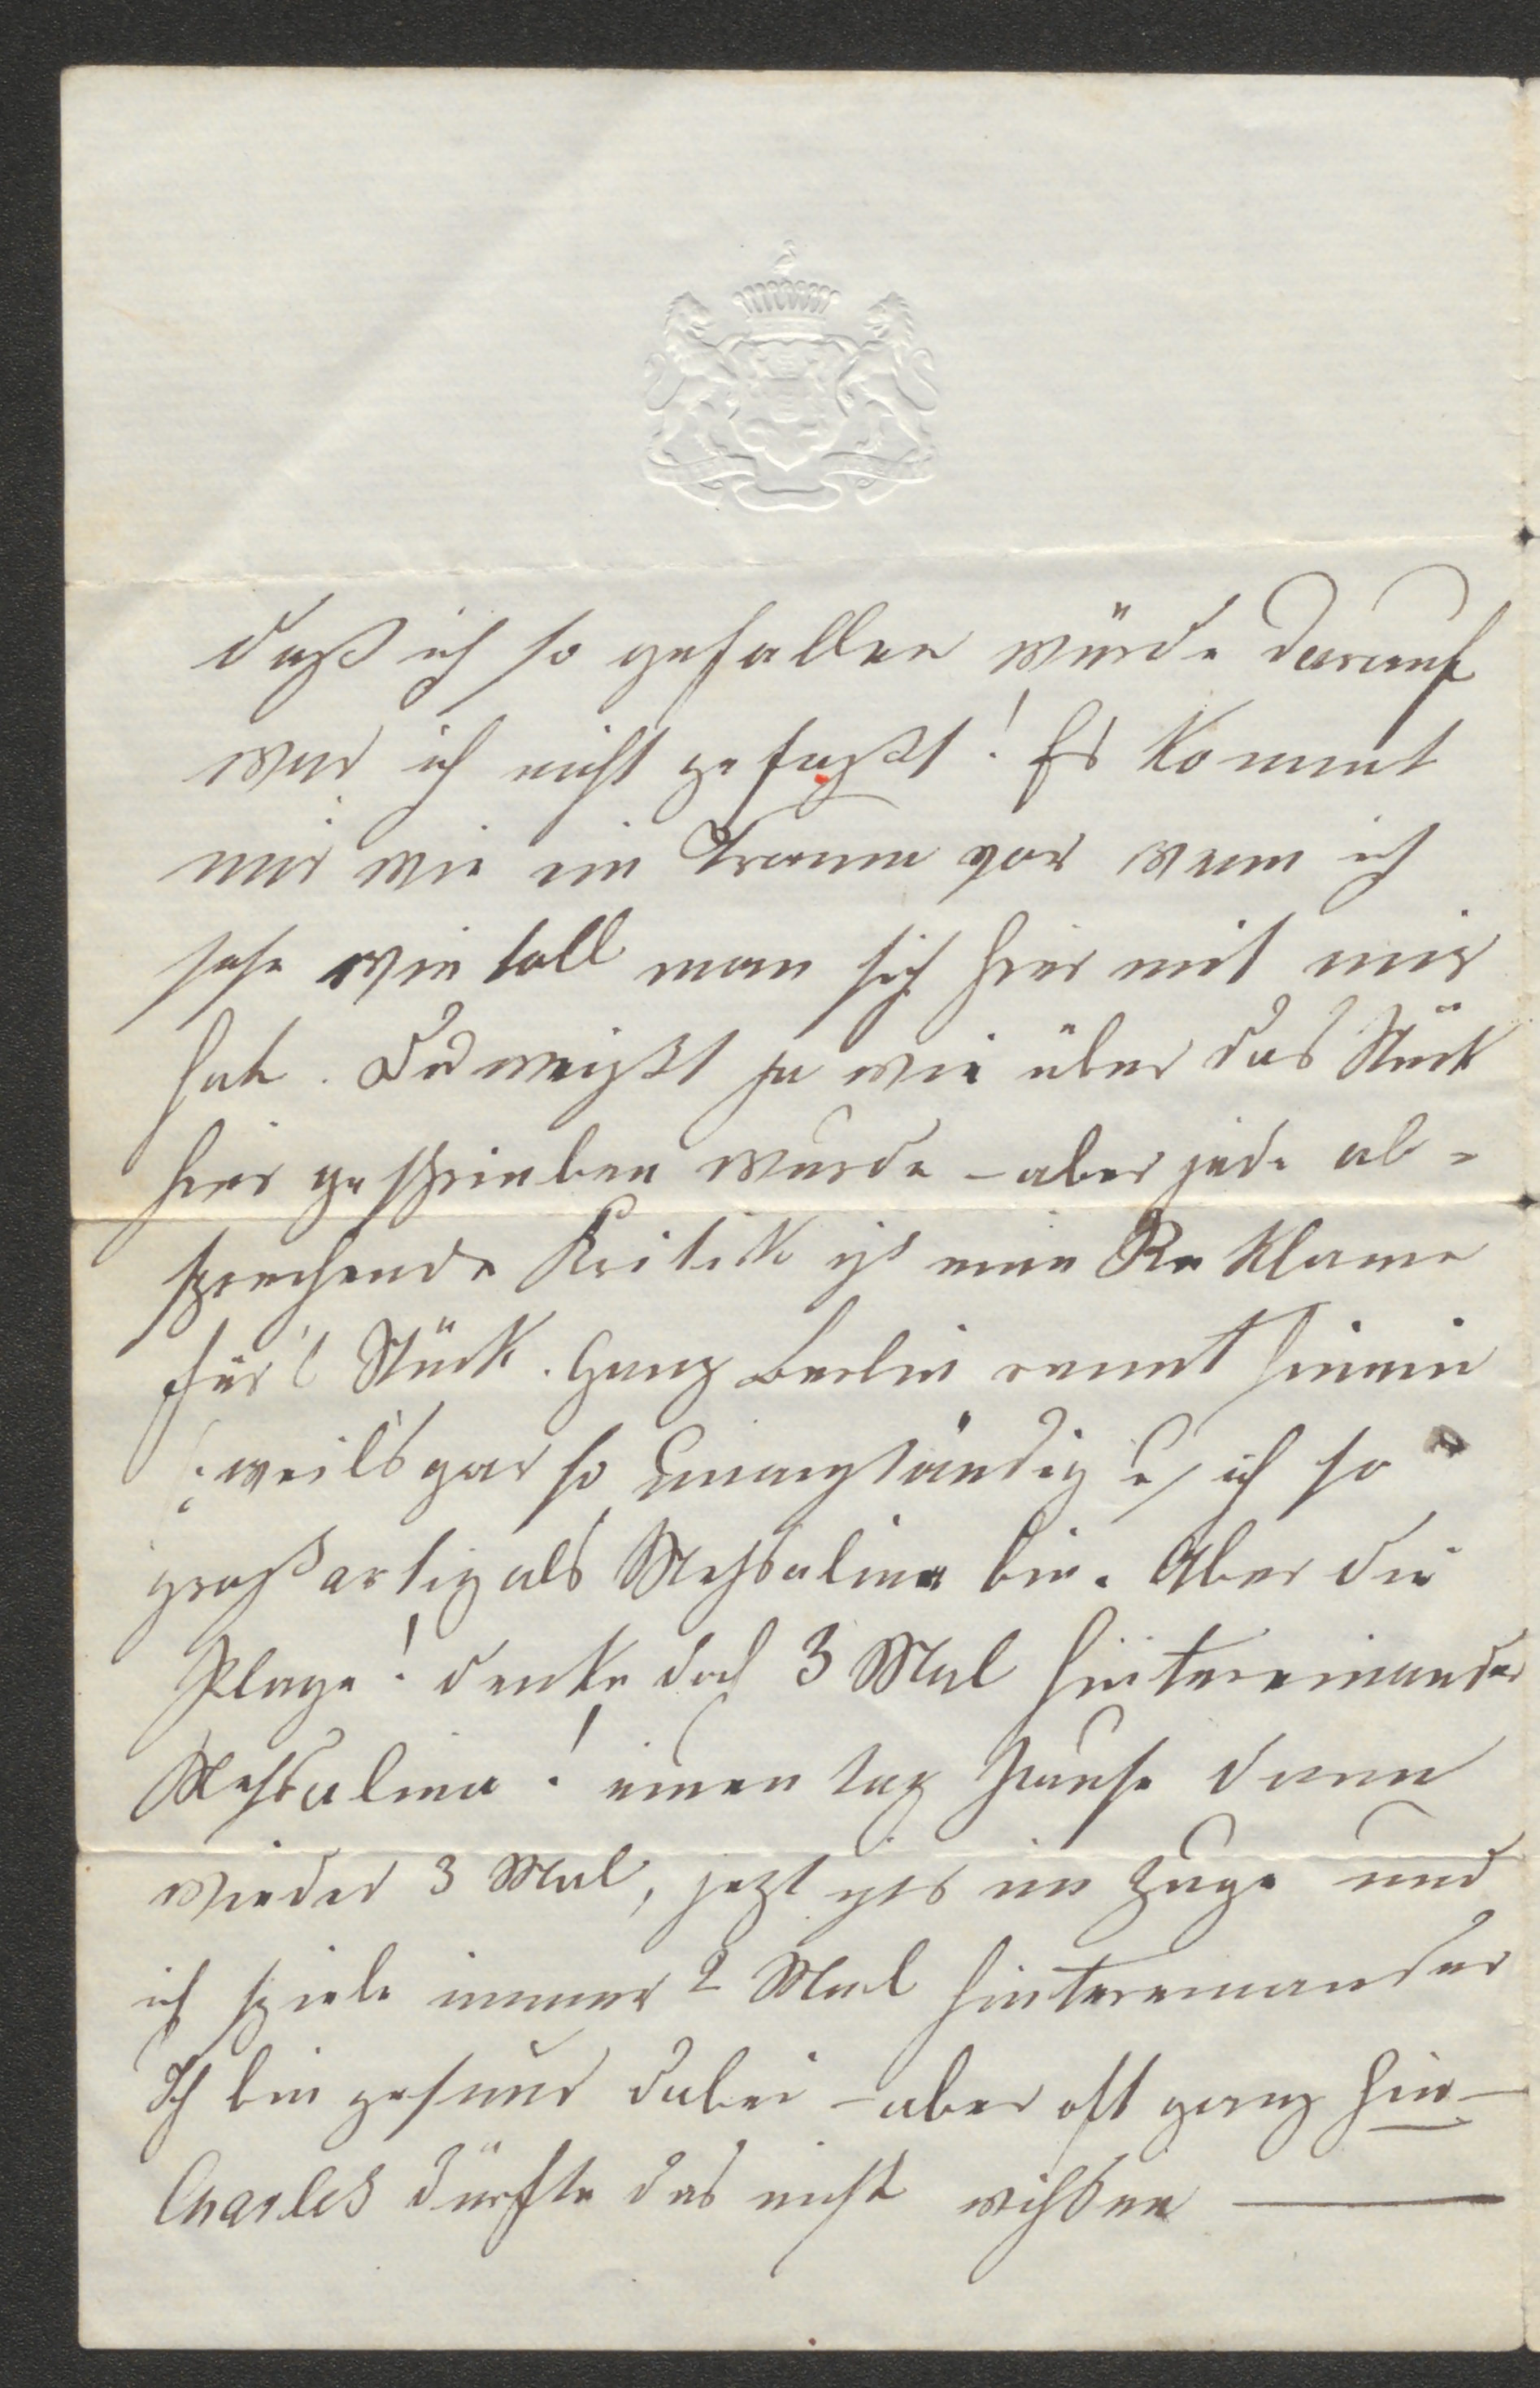 daß ich so gefallen würde darauf
war ich nicht gefaßt! Es kommt
mir wie ein Traum vor wenn ich
sehe wie toll man sich hier mit mir
hat. Du weißt ja wie über das Stück
hier geschrieben wurde – aber jede ab-
sprechende Kritik ist eine Reklame
für's Stück. Ganz Berlin rennt hinein
weils gar so unanständig u ich so
großartig als Messalina bin. Aber die
Plage! denke doch 3 Mal hintereinander
Messalina! einen tag Pause dann
wieder 3 Mal, jezt ists im Zuge und
ich spiele immer 2 Mal hintereinander
Ich bin gesund dabei – aber oft ganz hin –
Charles dürfte das nicht wissen —